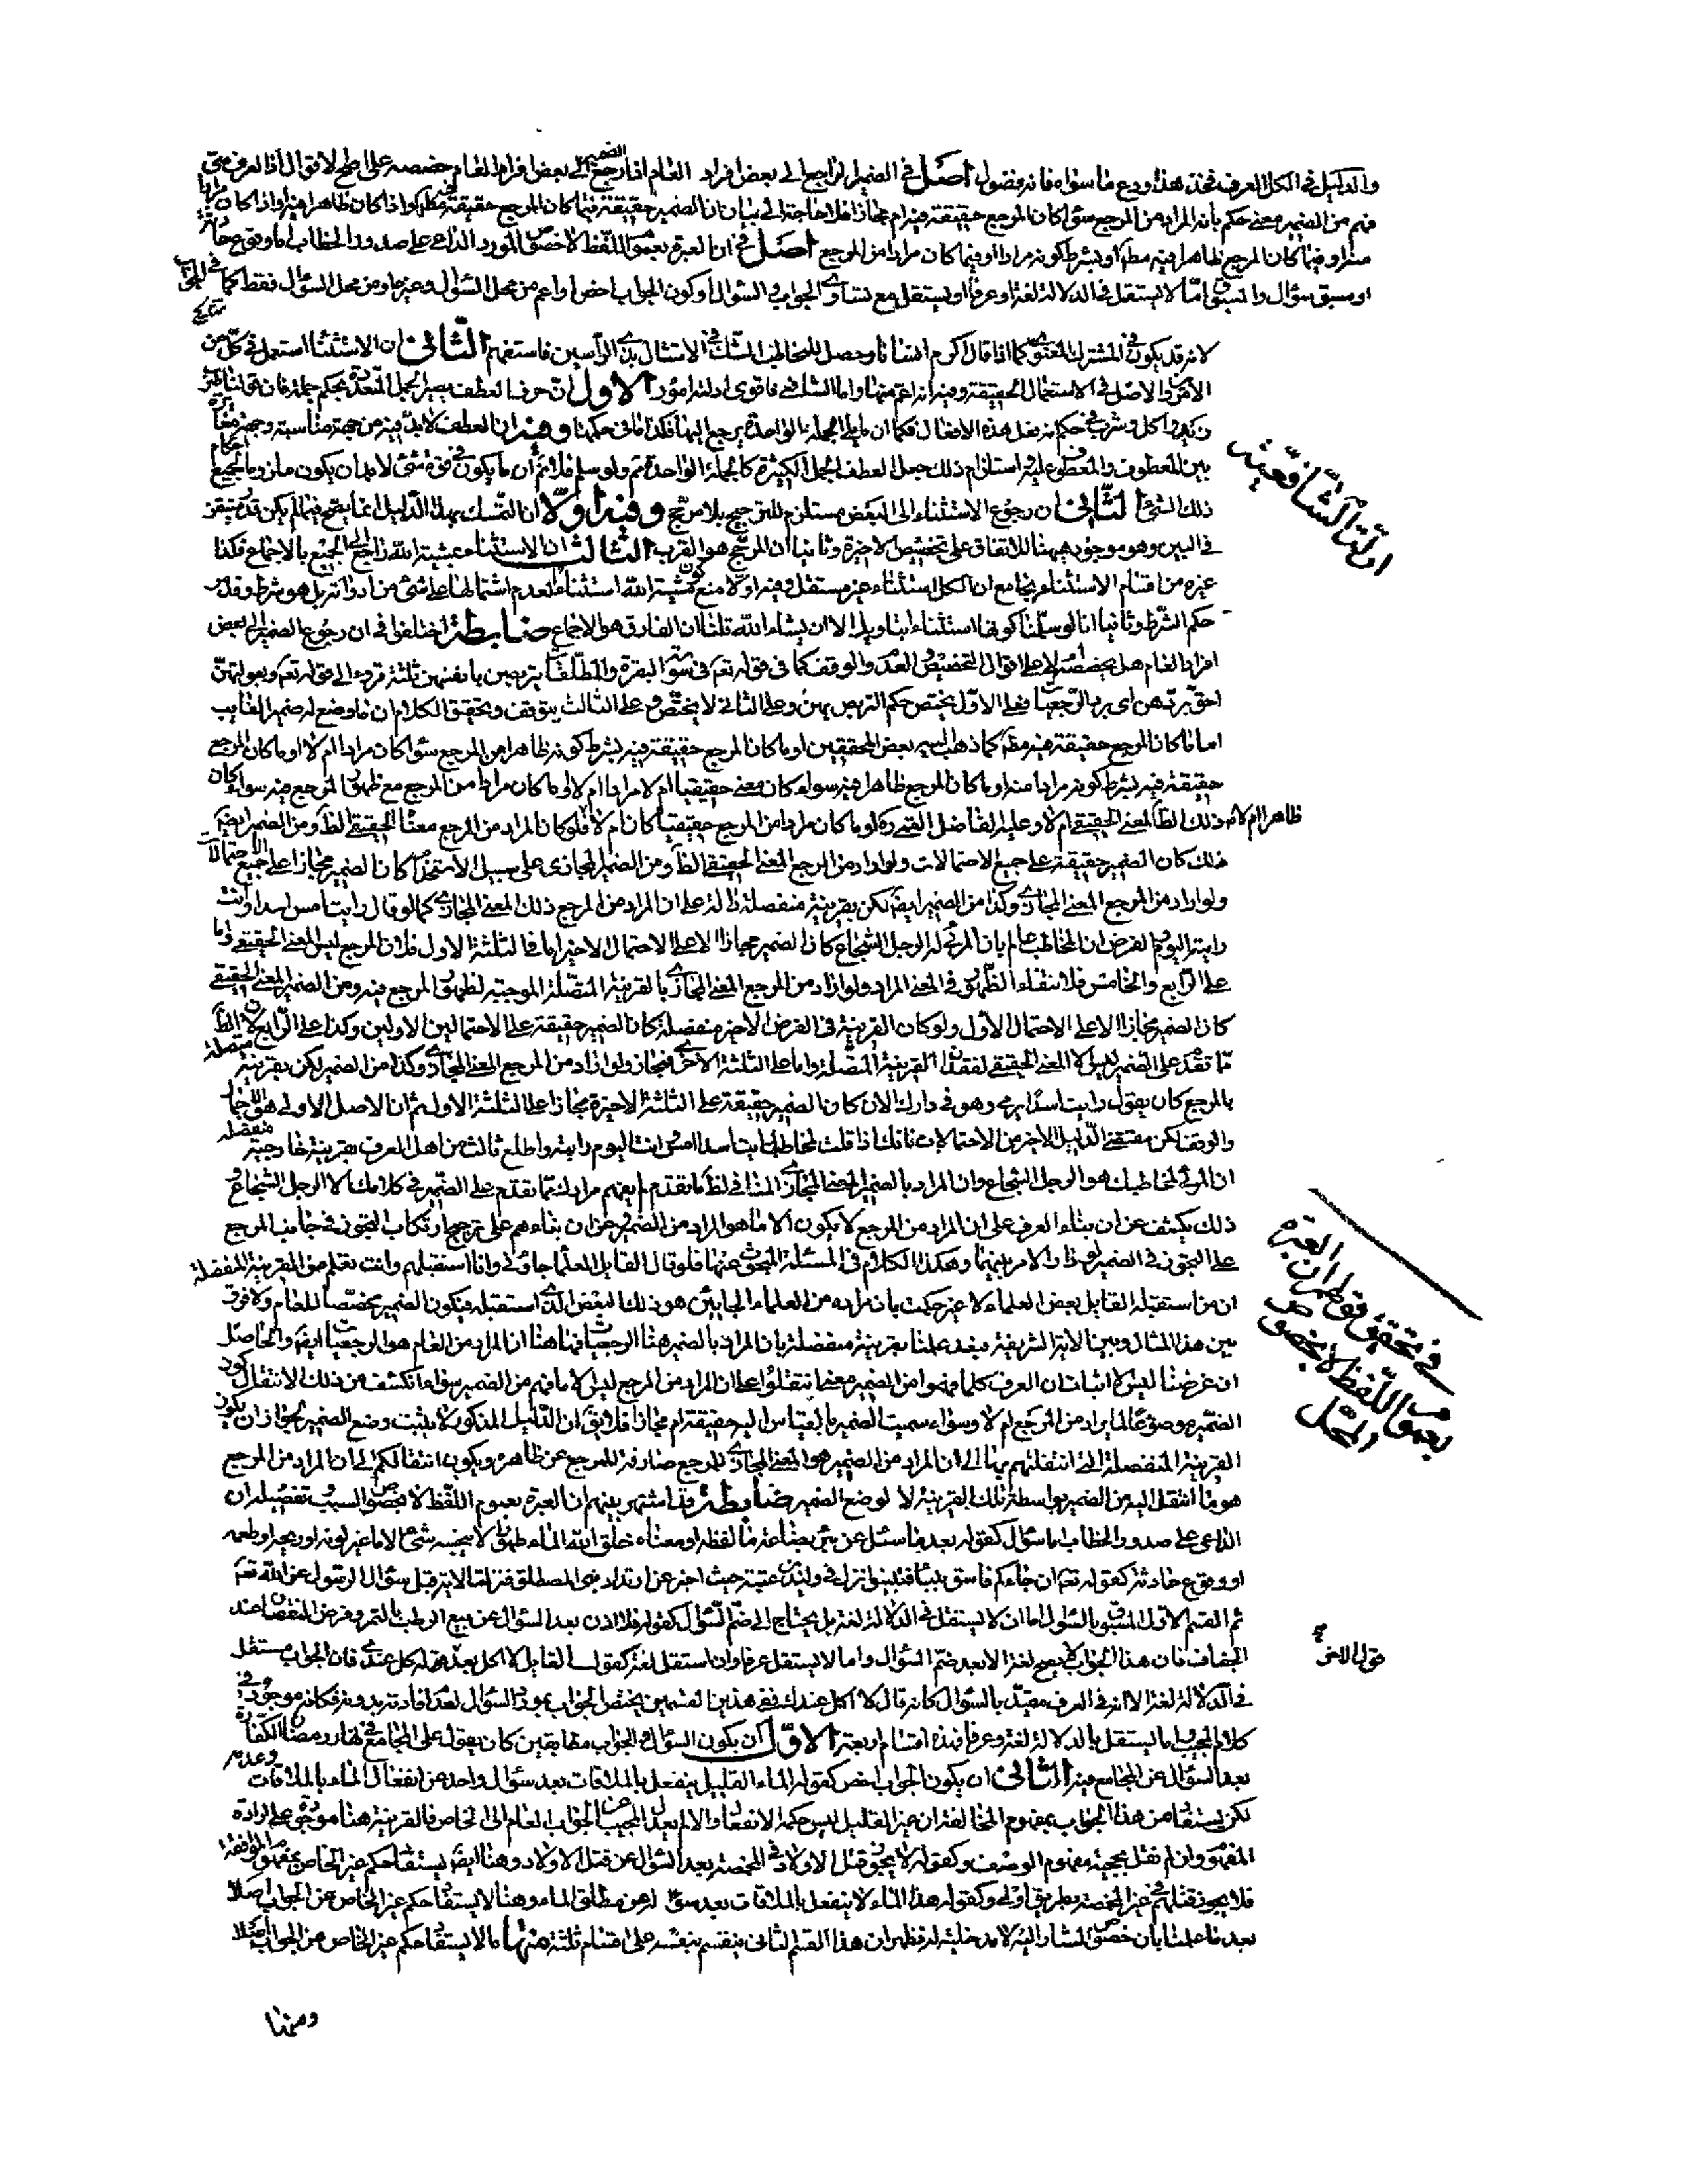 والدليل في الكل العرف فخذ هذا ودع ما سواه فانه فضول اصل في الضمير الراجع الى بعض افراد العام اذا رجع الضمير الى بعض افراد العام خصصه على الاصح لا يقال اذا العرف متى
فهم من الضمير معنى حكم بانه المراد من المرجع سواء كان المرجع حقيقة فيه ام مجازا فلا حاجة الى بيان ان الضمير حقيقة فيما كان المرجع حقيقة فيه مطلقا او اذا كان ظاهرا فيه او اذا كان مرادا
منه او فيما كان المرجع ظاهرا فيه مطلقا او بشرط كونه مرادا او فيما كان مرادا من المرجع اصل في ان العبرة بعموم اللفظ لا خصوص المورد الداعي على صدور الخطاب اما وقوع حادثة
او مسبق سؤال والمسبوق اما لا يستقل في الدلالة لغة او عرفا او يستقل مع تساوي الجواب والسؤال او كون الجواب اخص او اعم من محل السؤال وغيره او من محل السؤال فقط كما في الجواب
لانه قد يكون في المشترك المعنوي كما اذا قال اكرم انسانا وحصل للمخاطب الشك في الامتثال بذي الرأسين فاستفهم الثاني ان الاستثناء استعمل في كل من
الامرين والاصل في الاستعمال الحقيقة وفيه انه اعم منها واما الشافعي فاقوى ادلته امور الاول ان حرف العطف يصير الجمل المتعددة بحكم جملة فان قولنا
زيد اكل وشرب في حكم فعل هذه الافعال فكما ان ما يلي الجملة الواحدة يرجع اليها فكذا ما في حكمها وفيه ان العطف لابد فيه من جهة مناسبة وجهة مغايرة
بين المعطوف والمعطوف عليه استلزام ذلك جعل العطف الجمل الكثيرة كالجملة الواحدة ثم ولو سلم فلا نم ان ما يكون في قوة شيء لابد ان يكون ملزوما لجميع احكام
ذلك الشيء الثاني ان رجوع الاستثناء الى البعض مستلزم للترجيح بلا مرجح وفيه اولا ان التمسك بهذا الدليل انما يصح فيما لم يكن قدر متيقن
في البين وهو موجود ههنا للاتفاق على تخصيص الاخيرة وثانيا ان المرجح هو القرب الثالث ان الاستثناء بمشية الله راجع الى الجميع بالاجماع فكذا
غيره من اقسام الاستثناء بجامع ان الكل استثناء غير مستقل وفيه اولا منع كون مشية الله استثناء لعدم اشتمالها على شيء من ادواته بل هو شرط وقد مر
حكم الشرط وثانيا انا لو سلمنا كونها استثناء بتاويل الا ان يشاء الله قلنا ان الفارق هو الاجماع ضابطة اختلفوا في ان رجوع الضمير الى بعض
افراد العام هل يخصصه ام لا على اقوال التخصيص والعدم والوقف كما في قوله تعم في سورة البقرة والمطلقات يتربصن بانفسهن ثلثة قروء الى قوله تعم وبعولتهن
احق بردهن اي برد الرجعيات فعلى الاول يختص حكم التربص بهن وعلى الثاني لا يختص وعلى الثالث يتوقف وتحقيق الكلام ان ما وضع له ضمير الغايب
اما ما كان المرجع حقيقة فيه مطلقا كما ذهب اليه بعض المحققين او ما كان المرجع حقيقة فيه بشرط كونه ظاهرا من المرجع سواء كان مرادا ام لا او ما كان المرجع
حقيقة فيه بشرط كونه مرادا منه او ما كان المرجع ظاهرا فيه سواء كان معنى حقيقيا ام لا مرادا ام لا او ما كان مرادا من المرجع مع ظهور المرجع فيه سواء كان
ذلك الظاهر المعنى الحقيقي ام لا وعليه الفاضل القمي ره او ما كان مرادا من المرجع حقيقيا كان ام لا فلو كان المراد من المرجع معناه الحقيقي الظاهر ومن الضمير ايضا ظاهرا ام لا
ذلك كان الضمير حقيقة على جميع الاحتمالات ولو اراد من المرجع المعنى الحقيقي الظاهر ومن الضمير المجازي على سبيل الاستخدام كان الضمير مجازا على جميع الاحتمالات
ولو اراد من المرجع المعنى المجازي وكذا من الضمير ايضا لكن بقرينة منفصلة دالة على ان المراد من المرجع ذلك المعنى المجازي كما لو قال رايت امس اسدا وانت
رايته اليوم لفرض ان المخاطب عالم بان المرئي له الرجل الشجاع كان الضمير مجازا الا على الاحتمال الاخير اما في الثلثة الاول فلان المرجع ليس المعنى الحقيقي واما
على الرابع والخامس فلانتفاء الظهور في المعنى المراد ولو اراد من المرجع المعنى المجازي بالقرينة المتصلة الموجبة لظهور المرجع فيه ومن الضمير المعنى الحقيقي
كان الضمير مجازا الا على الاحتمال الاول ولو كان القرينة في الفرض الاخير منفصلة كان الضمير حقيقة على الاحتمالين الاولين وكذا على الرابع لان الظاهر
مما تقدم على الضمير ليس الا المعنى الحقيقي لفقد القرينة المتصلة واما على الثلثة الاخرى فمجاز ولو اراد من المرجع المعنى المجازي وكذا من الضمير لكن بقرينة متصلة
بالمرجع كان يقول رايت اسدا يرمي وهو في دارك الان كان الضمير حقيقة على الثلثة الاخيرة مجازا على الثلثة الاول ثم ان الاصل الاولى هو الاجمال
والوقف لكن مقتضى الدليل الاخير من الاحتمالات فانك اذا قلت لمخاطبك رايت اسدا امس انت اليوم رايته واطلع ثالث من اهل العرف بقرينة خارجية منفصلة
ان المرئي لمخاطبك هو الرجل الشجاع وان المراد بالضمير المعنى المجازي المنافي لظاهر ما تقدم لم يفهم مرادك مما تقدم على الضمير في كلامك الا الرجل الشجاع و
ذلك يكشف عن ان بناء العرف على ان المراد من المرجع لا يكون الا ما هو المراد من الضمير وعن ان بناءهم على ترجيح ارتكاب التجوز في جانب المرجع
على التجوز في الضمير لو دار الامر بينهما وهكذا الكلام في المسئلة المبحوث عنها فلو قال القايل العلماء جاؤني وانا استقبلهم وانت تعلم من القرينة المنفصلة
ان من استقبله القايل بعض العلماء لا غير حكمت بان مراده من العلماء الجائين هو ذلك البعض الذي استقبله فيكون الضمير مخصصا للعام ولا فرق
بين هذا المثال وبين الاية الشريفة فبعد علمنا بقرينة منفصلة بان المراد بالضمير هنا الرجعيات فهمنا هنا ان المراد من العام هو الرجعيات ايضا والحاصل
ان غرضنا ليس الا اثبات ان العرف كلما فهموا من الضمير معنا انتقلوا على ان المراد من المرجع ليس الا ما فهم من الضمير سواء انكشف من ذلك الانتقال كون
الضمير موضوعا لما يراد من المرجع ام لا وسواء سميت الضمير بالقياس اليه حقيقة ام مجازا فلا يقال ان الدليل المذكور لا يثبت وضع الضمير لجواز ان يكون
القرينة المنفصلة التي انتقلتهم بها الى ان المراد من الضمير هو المعنى المجازي للمرجع صارفة للمرجع عن ظاهره ويكون انتقالكم الى ان المراد من المرجع
هو ما انتقل اليه من الضمير بواسطة تلك القرينة لا لوضع الضمير ضابطة قد اشتهر بينهم ان العبرة بعموم اللفظ لا بخصوص السبب تفصيله ان
الداعي على صدور الخطاب اما سؤال كقوله بعد ما سئل عن بئر بضاعة ما لفظه او معناه خلق الله الماء طهورا لا ينجسه شيء الا ما غير لونه او ريحه او طعمه
او وقوع حادثة كقوله تعم ان جاءكم فاسق بنبا فتبينوا نزل في وليد بن عتبة حيث اخبر عن ارتداد بني المصطلق فنزلت الاية قبل سؤال الرسول عن الله تعم
ثم القسم الاول المسبوق بالسؤال اما ان لا يستقل في الدلالة لغة بل يحتاج الى ضم السؤال كقوله فلا اذن بعد السؤال عن بيع الرطب بالتمر وفرض النقصان عند
الجفاف فان هذا الجواب لا يصح لغة الا بعد ضم السؤال واما لا يستقل عرفا وان استقل لغة كقول القايل لا اكل بعد قوله كل عندي فان الجواب مستقل
في الدلالة لغة الا انه في العرف مقيد بالسؤال كانه قال لا اكل عندك ففي هذين القسمين يختص الجواب بمورد السؤال لعدم افادته بدونه فكانه موجود في
كلام المجيب واما يستقل بالدلالة لغة وعرفا فهذه اقسام اربعة الاول ان يكون السؤال والجواب مطابقين كان يقول على المجامع في نهار رمضان الكفارة
بعد السؤال عن المجامع فيه الثاني ان يكون الجواب اخص كقوله الماء القليل ينفعل بالملاقات بعد سؤال واحد عن انفعال الماء بالملاقات وعدمه
لكن يستفاد من هذا الجواب بمفهوم المخالفة ان غير القليل ليس حكمه الانفعال والا لم يعدل المجيب عن الجواب العام الى الخاص فالقرينة هنا موجودة على ارادة
المفهوم وان لم نقل بحجية مفهوم الوصف وكقوله لا يجوز قتل الاولاد في المخمصة بعد السؤال عن قتل الاولاد وهنا ايضا يستفاد حكم غير الخاص بمفهوم الموافقة
فلا يجوز قتلهم في غير المخمصة بطريق اولى وكقوله هذا الماء لا ينفعل بالملاقات بعد سؤاله عن مطلق الماء وهنا لا يستفاد حكم غير الخاص من الجواب اصلا
بعد ما علمنا بان خصوص المشار اليه لا مدخلية له فظهر ان هذا القسم الثاني ينقسم بنفسه على اقسام ثلثة منها ما لا يستفاد حكم غير الخاص من الجواب اصلا
ومنها
ادلة الشافعية
في تحقيق قولهم ان العبرة
بعموم اللفظ لا بخصوص
المحل